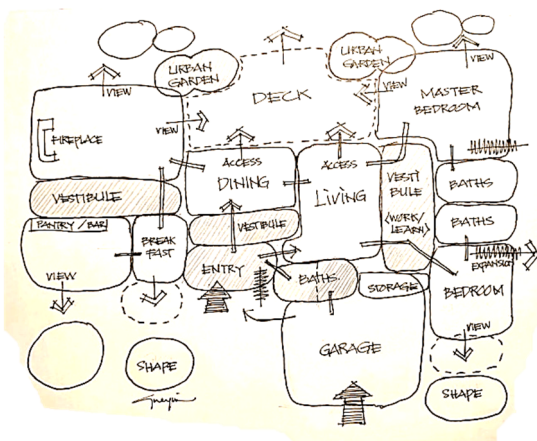 URBAN
GARDEN
URBAN
GARDEN
VIEW
VIEW
DECK
VIEW
MASTER
BEDROOM
VIEW
FIREPLACE
ACCESS
DINING
ACCESS
LIVING
VESTI
BULE
<WORK/
LEARN>
BATHS
VESTIBULE
BATHS
PANTRY/BAR
BREAK
FAST
VESTIBULE
ENTRY
BATHS
STORAGE
EXPANSION
BEDROOM
VIEW
VIEW
GARAGE
SHAPE
SHAPE